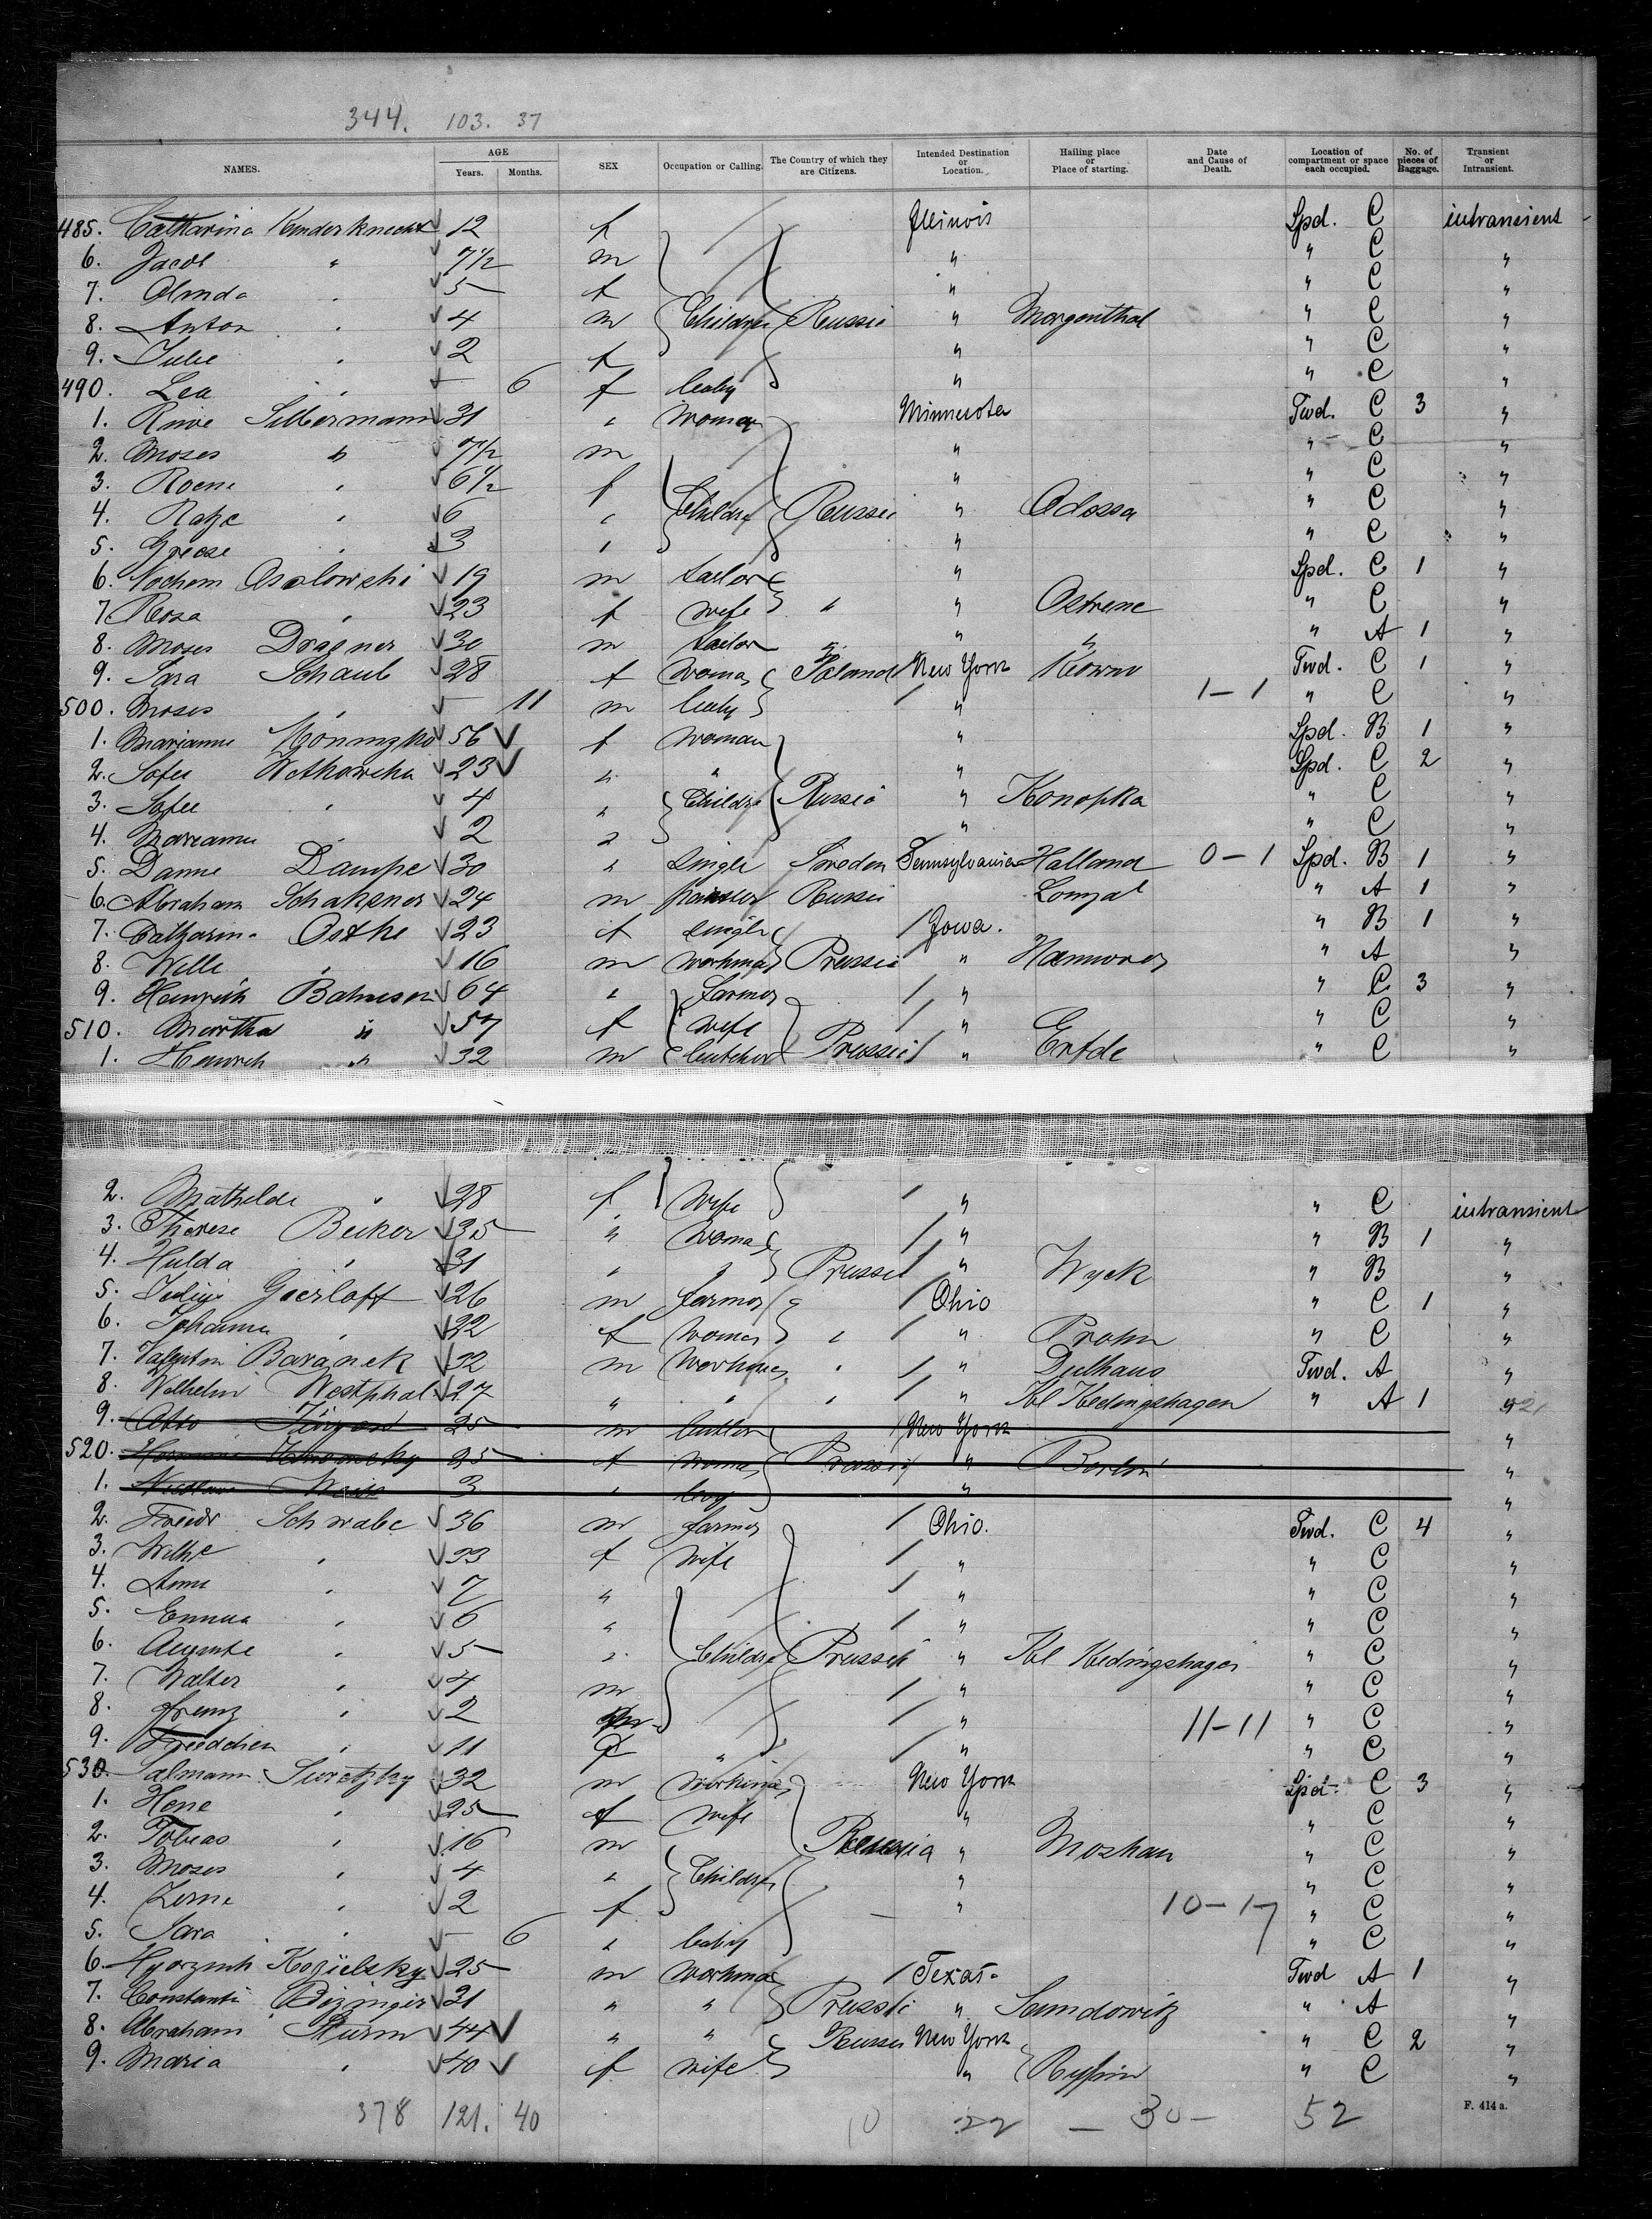 344. 103. 37
NAMES. AGE Years. Months. SEX Occupation or Calling. The Country of which they are Citizens. Intended Destination or Location. Hailing place or Place of starting. Date and Cause of Death. Location of compartment or space each occupied. No. of pieces of Baggage. Transient or Intransient.
485. Catharina Kinderknecht 12 f Illinois Spd. C intransient
6. Jacob " 7½ m " " C "
7. 5 f " " C "
8. Anton " 4 m Children Russia " Morgenthal " C "
9. Julie " 2 f " " C "
490. Lea " — 6 f baby " " C "
1. Silbermann 31 " Woman Minnesota Twd. C 3 "
2. Moses " 7½ m " " C "
3. " 6½ f " " C "
4. " 6 " Childr Russia " Odossa " C "
5. " 3 " " " C "
6. Nochem 19 m tailor " Spd. C 1 "
7. Rosa " 23 f wife " " Ostrene " C "
8. Moses Dragner 30 m tailor " " " " A 1 "
9. Sara Schaub 28 f Woman Poland New York Kowno Twd. C 1 "
500. Moses " — 11 m baby " 1-1 " C "
1. Marianne 56 f Woman " Spd. B 1 "
2. Sofie 23 " " " Spd. C 2 "
3. Sofie " 4 " Childr Russia " Konopka " C "
4. Marianne " 2 " " " C "
5. 30 " Single Sweden Pennsylvania Halland 0-1 Spd. B 1 "
6. Abraham 24 m Russia " A 1 "
7. Osthe 23 f single Iowa. " B 1 "
8. Wille " 16 m workman Prussia " Hannover " A "
9. Heinrich Bahnsen 64 " farmer " " C 3 "
510. Martha " 57 f wife " " C "
1. Heinrich " 32 m butcher Prussia " Erfde " C "
2. Mathilde " 28 f Wife " " C intransient
3. Therese Becker 35 " Woman " " B 1 "
4. Hulda " 31 " " Prussia " Wyck " B "
5. Julius Gierloff 26 m farmer " Ohio " C 1 "
6. Johanna " 22 f Woman " " Prohn " C "
7. Baranek 32 m Workman " " Twd. A "
8. Wilhelm Westphal 27 " " " " Kl Kedingshagen " A 1 "
9. Otto 25 m New York "
520. 25 f Woman Prussia " Berlin "
1. 3 " boy " "
2. Friedr Schwabe 36 m farmer Ohio. Twd. C 4 "
3. " 33 f wife " " C "
4. Anna " 7 " " " C "
5. Emma " 6 " " " C "
6. Auguste " 5 " Childr Prussia " Kl Kedingshagen " C "
7. Walter " 4 m " " C "
8. Franz " 2 m " 11-11 " C "
9. Friedchen " 11 f " " " C "
530. Salmann 32 m workman New York Spd. C 3 "
1. Hene " 25 f wife " " C "
2. Tobias " 16 m Russia " " C "
3. Moses " 4 " Children " " C "
4. " 2 f " 10-17 " C "
5. Sara " — 6 " baby " C "
6. 25 m workman Texas Twd A 1 "
7. Constantin 21 " " Prussia " Sandowitz " A "
8. Abraham Sturm 44 " " Russia New York " C 2 "
9. Maria " 40 f wife " " C "
378 121. 40 10 22 — 30 — 52 F. 414 a.